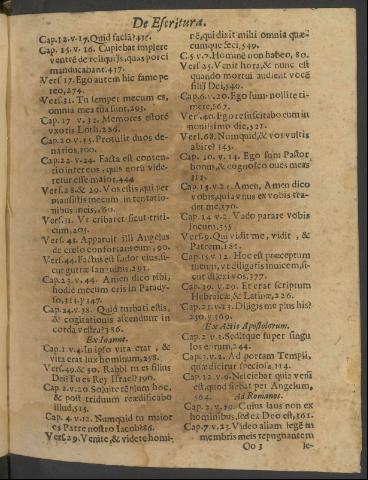 De Escritura.
Cap. 12. v. 17. Quid faciã? 435.
Cap. 15. v. 16. Cupiebat implere
ventrẽ de reliquijs, quas porci
manducabant. 437.
Vers. 17. Ego autem hic fame pe
reo, 274.
Vers. 31. Tu semper mecum es,
omnia mea tua sunt, 293.
Cap. 17 v. 32. Memores estote
vxoris Loth, 286.
Cap. 20 v. 15. Protulit duos de-
narios, 100.
Cap. 22. v. 24. Facta est conten-
tio inter eos, quis eorũ vide-
retur esse maior, 444
Vers. 28. & 29. Vos estis, qui per
mansistis mecum in tentatio-
nibus meis, 160.
Vers. 31. Vt cribaret sicut triti-
cum, 205.
Vers. 43. Apparuit illi Angelus
de cœlo confortans eum, 90.
Vers. 44. Factus est sudor eius, si-
cut guttæ sanguinis, 291.
Cap. 23. v. 44. Amen dico tibi,
hodie mecum eris in Parady-
so, 311. y 347.
Cap. 24. v. 38. Quid turbati estis,
& cogitationis ascendunt in
corda vestra? 386.
Ex Ioanne.
Cap. 1. v. 4. In ipso vita erat, &
vita erat lux hominum, 258.
Vers. 49. & 50. Rabbi tu es filius
Dei: Tu es Rey Israel? 190.
Cap. 2. v. 20. Soluite templum hoc,
& post triduum reædificabo
illud, 515.
Cap. 4. v. 12. Numquid tu maior
es Patre nostro Iacob? 86.
Vers. 29. Venite, & videte homi-
nẽ, qui dixit mihi omnia quæ-
cumque feci, 549.
C. 5. v. 7. Hominẽ non habeo, 80.
Vers. 25. Venit hora, & nunc est
quando mortui audient vocẽ
filij Dei, 540.
Cap. 6. v. 20. Ego sum, nolite ti-
mere, 567.
Vers. 40. Ego resuscitabo eum in
nouissimo die, 521.
Vers. 68. Numquid, & vos vultis
abire? 145.
Cap. 10. v. 14. Ego sum Pastor
bonus, & cognosco oues meas
312.
Cap. 13. v. 21. Amen, Amen dico
vobis, quia vnus ex vobis tra-
det me, 370.
Cap. 14 v. 2. Vado parare vobis
locum, 355
Vers. 9. Qui videt me, videt, &
Patrem, 181.
Cap. 15. v. 12. Hoc est præceptum
meum, vt diligatis inuicem, si-
cut dilexi vos, 377.
Cap. 19. v. 20. Et erat scriptum
Hebraicæ, & Latinæ, 226.
Cap. 21. v. 15. Diligis me plus his?
230. y 369.
Ex Actis Apostolorum.
Cap. 2 v. 3. Seditque super singu
los eorum, 244.
Cap. 3. v. 2. Ad portam Templi,
quæ dicitur speciosa, 114.
Cap. 12. v. 9. Nesciebat quia verũ
est, quod fiebat per Angelum,
564. Ad Romanos.
Cap. 2. v. 29. Cuius laus non ex
hominibus, sed ex Deo est, 561.
Cap. 7. v. 23. Video aliam legẽ in
membris meis repugnantem
Oo 3 le-